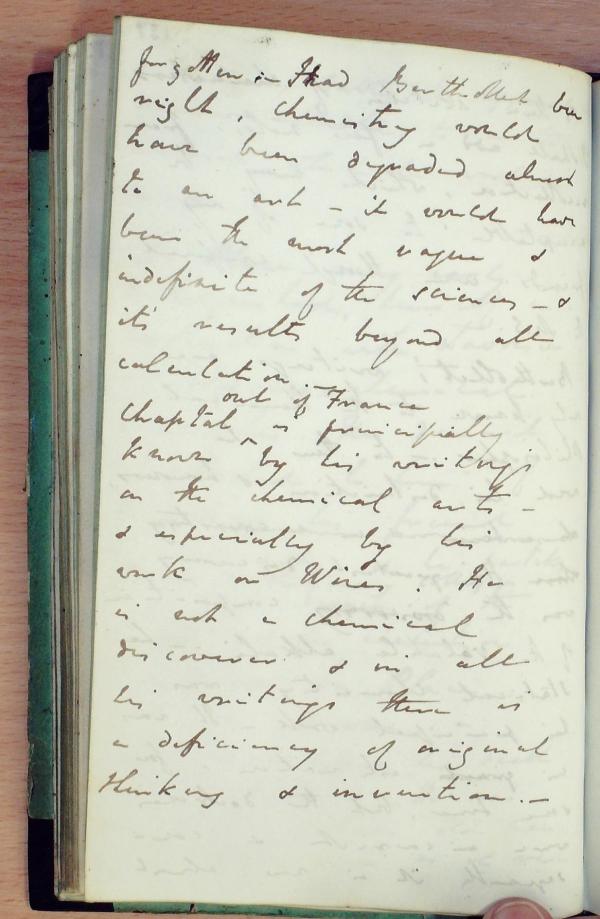 forgotten :- Had Berthollet been
right, chemistry would
have been degraded almost
to an art - it would have
been the most vague &
indefinite of the sciences - &
its results beyond all
calculation. -
out of France
Chaptal ^ is principally
known by his writings
on the chemical arts -
& especially by his
work on Wines. He
is not a chemical
discoverer & in all
his writings there is
a deficiency of original
thinking & invention. -